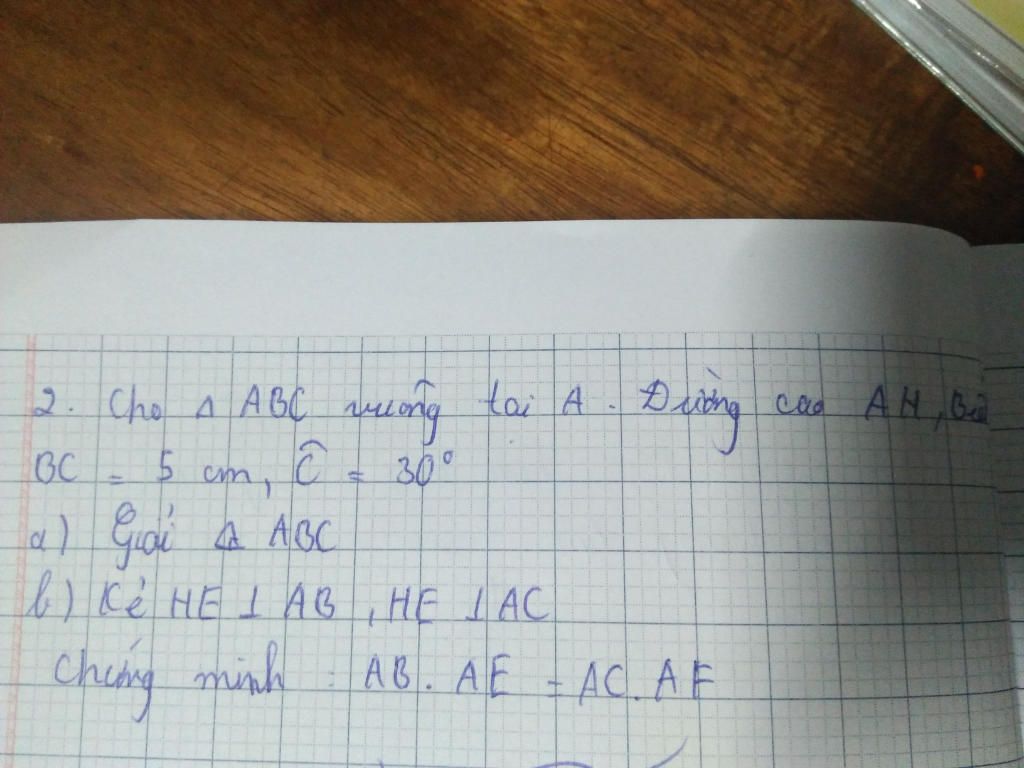 2. Cho Δ ABC vuông tai A. Đường cao AH,
BC = 5 cm, Ĉ = 30°
a) Giải Δ ABC
b) Kẻ HE ⊥ AB, HE ⊥ AC
Chứng minh : AB. AE = AC. AF